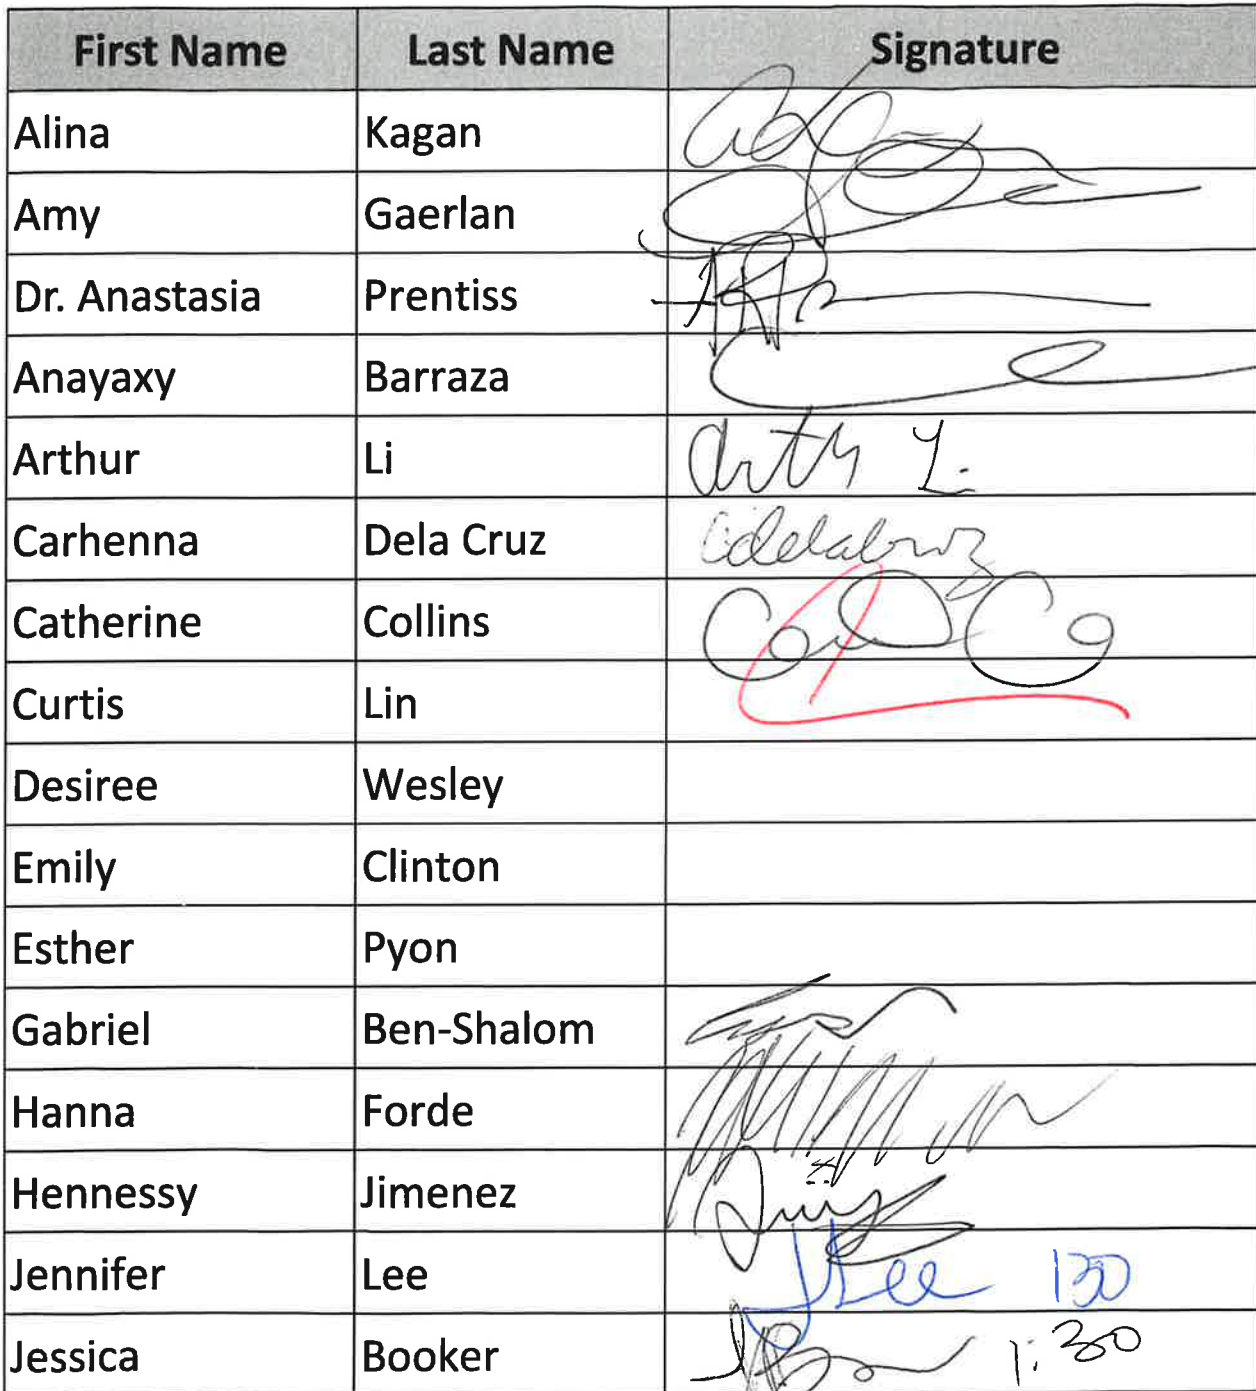 First Name Last Name Signature
Alina Kagan
Amy Gaerlan
Dr. Anastasia Prentiss
Anayaxy Barraza
Arthur Li
Carhenna Dela Cruz Cdelacruz
Catherine Collins
Curtis Lin
Desiree Wesley
Emily Clinton
Esther Pyon
Gabriel Ben-Shalom
Hanna Forde
Hennessy Jimenez
Jennifer Lee JLee 130
Jessica Booker 1:30